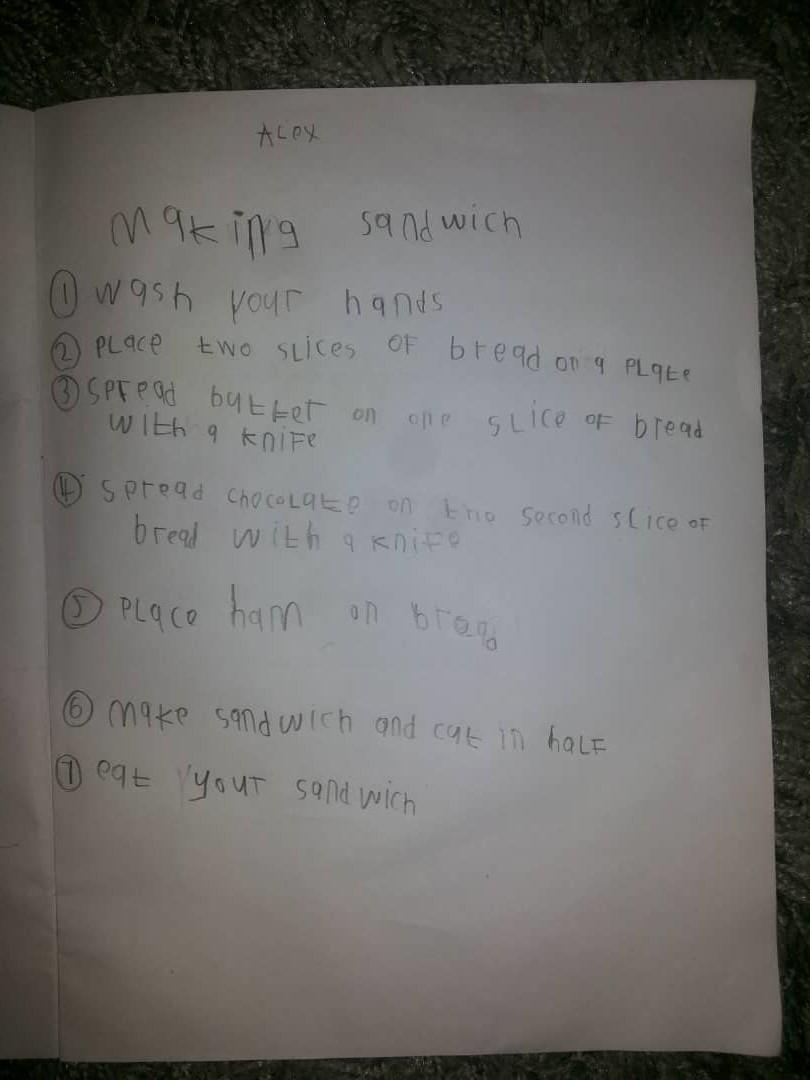 Alex
Making sandwich
① wash your hands
② Place two slices of bread on a plate
③ spread butter on one slice of bread
with a knife
④ spread chocolate on the second slice of
bread with a knife
⑤ Place ham on bread
⑥ make sandwich and cut in half
⑦ eat your sandwich